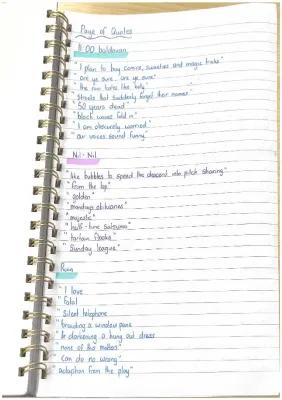 Page of Quotes
11:00 baldovan
" I plan to buy comics, sweeties and magic tricks"
" are ye sure.. are ye sure"
" the row tastes like "
" streets that suddenly forget their names"
" 50 years dead"
" black waves fold in"
" I am obscurely worried"
" our voices sound funny"
Nil - Nil
" like bubbles to speed the descent into pitch sharing"
" from the top"
" golden"
" obituaries"
" majestic"
" half-time satsuma"
" tartan flooks"
" Sunday league"
Rain
" I love
" Fatal
" Silent telephone
" braiding a window pane
" or darkening a hung out dress
" none of this matters
" can do no wrong"
" adaption from the play"